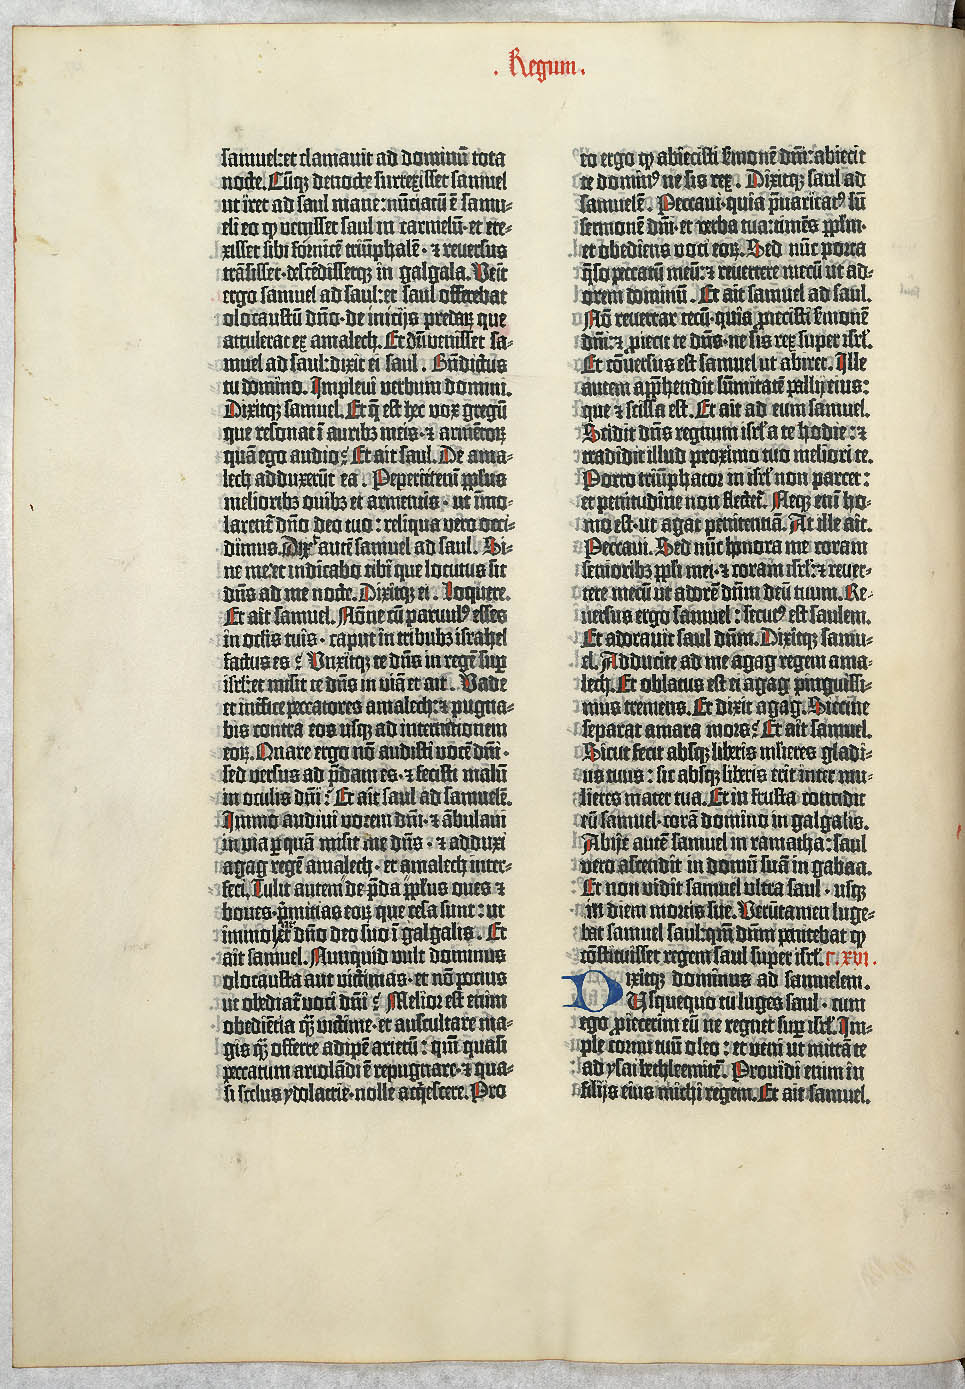 . Regum .
samuel: et clamauit ad dominū tota
nocte. Cūq; de nocte surrexisset samuel
ut iret ad saul mane: nūciatū ē samu-
eli eo ꝙ uenisset saul in carmelū · et ere-
xisset sibi fornicē triūphalē · ⁊ reuersus
trāsisset · descēdissetq; in galgala. Ueīt
ergo samuel ad saul: et saul offerebat
olocaustū dño · de inicijs predaꝝ que
attulerat ex amalech. Et dū uenisset sa-
muel ad saul: dixit ei saul. Bn̄dictus
tu domino. Impleui uerbum domini.
Dixitq; samuel. Et q̄ est hec vox gregū
que resonat ī auribꝫ meis · ⁊ armētoꝝ
quā ego audio? Et ait saul. De ama-
lech adduxerūt ea. Pepercit enī ppl̄us
melioribꝫ ouibꝫ et armentis · ut īmo-
larent̄ dño deo tuo: reliqua vero occi-
dimus. Dix̄ autē samuel ad saul. Si-
ne me et indicabo tibi que locutus sit
dn̄s ad me nocte. Dixitq; ei. Loquere.
Et ait samuel. Nōne cū paruulꝰ esses
in oclīs tuis · caput in tribubꝫ israhel
factus es? Unxitq; te dn̄s in regē sup̄
isrl̄: et misit te dn̄s in viā et ait. Vade
et interfice peccatores amalech: ⁊ pugna-
bis contra eos usq; ad internetionem
eoꝝ. Quare ergo nō audisti vocē dn̄i ·
sed versus ad p̄dam es · ⁊ fecisti malū
in oculis dn̄i? Et ait saul ad samuelē.
Immo audiui vocem dn̄i · ⁊ ābulaui
in via p quā misit me dn̄s · ⁊ adduxi
agag regē amalech · et amalech inter-
feci. Tulit autem de p̄da ppl̄us oues ⁊
boues · p̄mitias eoꝝ que cesa sunt: ut
immolet dño deo suo ī galgalis. Et
ait samuel. Nunquid vult dominus
olocausta aut victimas · et nō pocius
ut obediat̄ voci dn̄i? Melior est enim
obediētia q̄ʒ victime · et auscultare ma-
gis q̄ʒ offerre adipē arietū: qm̄ quasi
peccatum ariolādi ē repugnare · ⁊ qua-
si scelus ydolatrie · nolle acq̄escere. Pro
eo ergo ꝙ abiecisti s̄monē dn̄i: abiecit
te dominꝰ ne sis rex. Dixitq; saul ad
samuelē. Peccaui · quia p̄uaricatꝰ sū
sermonē dn̄i · et verba tua: timēs ppl̄m ·
et obediens voci eoꝝ. Sed nūc porta
q̄so peccatū meū: ⁊ reuertere mecū ut ad-
orem dominū. Et ait samuel ad saul.
Nō reuertar tecū · quia proiecisti s̄monē
dn̄i: ⁊ proiecit te dn̄s · ne sis rex super isrl̄.
Et cōuersus est samuel ut abiret. Ille
autem app̄hendit sūmitatē pallij eius:
que ⁊ scissa est. Et ait ad eum samuel.
Scidit dn̄s regnum isrl̄ a te hodie: ⁊
tradidit illud proximo tuo meliori te.
Porro triūphator in isrl̄ non parcet:
et penitudine non flectet̄. Neq; enī ho-
mo est · ut agat penitentiā. At ille ait.
Peccaui. Sed nūc honora me coram
senioribꝫ ppl̄i mei · ⁊ coram isrl̄: ⁊ reuer-
tere mecū ut adorē dn̄m deū tuum. Re-
uersus ergo samuel: secutꝰ est saulem.
Et adorauit saul dn̄m. Dixitq; samu-
el. Adducite ad me agag regem ama-
lech. Et oblatus est ei agag pinguissi-
mus tremens. Et dixit agag. Siccine
separat amara mors? Et ait samuel.
Sicut fecit absq; liberis mlieres gladi-
us tuus: sic absq; liberis erit inter mu-
lieres mater tua. Et in frusta concidit
eū samuel · corā domino in galgalis.
Abijt autē samuel in ramatha: saul
vero ascendit in domū suā in gabaa.
Et non vidit samuel ultra saul · usq;
in diem mortis sue. Verūtamen luge-
bat samuel saul: qm̄ dn̄m penitebat ꝙ
cōstituisset regem saul super isrl̄. c. XVI.
Dixitq; dominus ad samuelem.
Usquequo tu luges saul · cum
ego proiecerim eū ne regnet sup̄ isrl̄? Im-
ple cornu tuū oleo: et veni ut mittā te
ad ysai bethleemitē. Prouidi enim in
filijs eius michi regem. Et ait samuel.